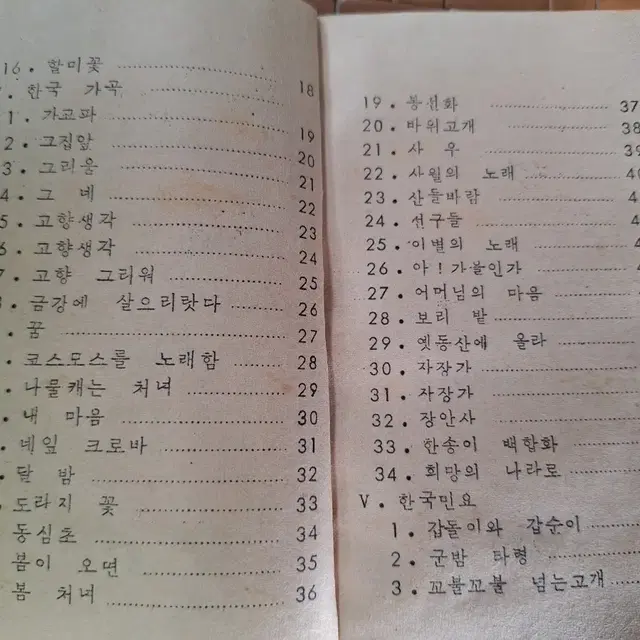 16. 할미꽃 18
. 한국 가곡
1. 가고파 19
2. 그집앞 20
3. 그리움 21
4. 그 네 22
5. 고향생각 23
6. 고향생각 24
7. 고향 그리워 25
. 금강에 살으리랏다 26
. 꿈 27
. 코스모스를 노래함 28
. 나물캐는 처녀 29
. 내 마음 30
. 네잎 크로바 31
. 달 밤 32
. 도라지 꽃 33
동심초 34
봄이 오면 35
봄 처녀 36
19. 봉선화 37
20. 바위고개 38
21. 사 우 39
22. 사월의 노래 40
23. 산들바람 4
24. 선구들 4
25. 이별의 노래 4
26. 아!가을인가
27. 어머님의 마음
28. 보리 밭
29. 옛동산에 올라
30. 자장가
31. 자장가
32. 장안사
33. 한송이 백합화
34. 희망의 나라로
V. 한국민요
1. 갑돌이와 갑순이
2. 군밤 타령
3. 꼬불꼬불 넘는고개